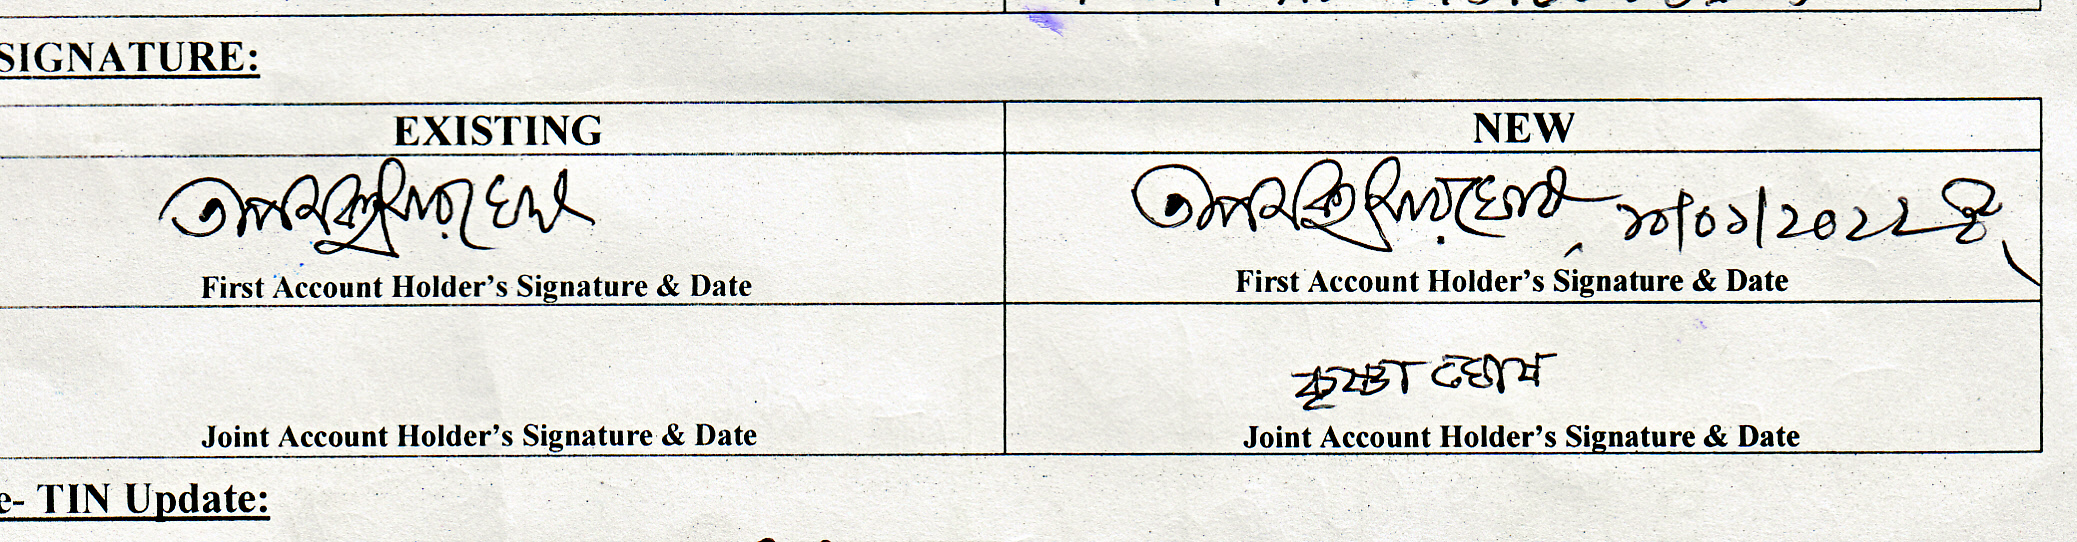 SIGNATURE:
EXISTING
NEW
First Account Holder's Signature & Date
First Account Holder's Signature & Date
কৃষ্ণা ঘোষ
Joint Account Holder's Signature & Date
Joint Account Holder's Signature & Date
e- TIN Update: